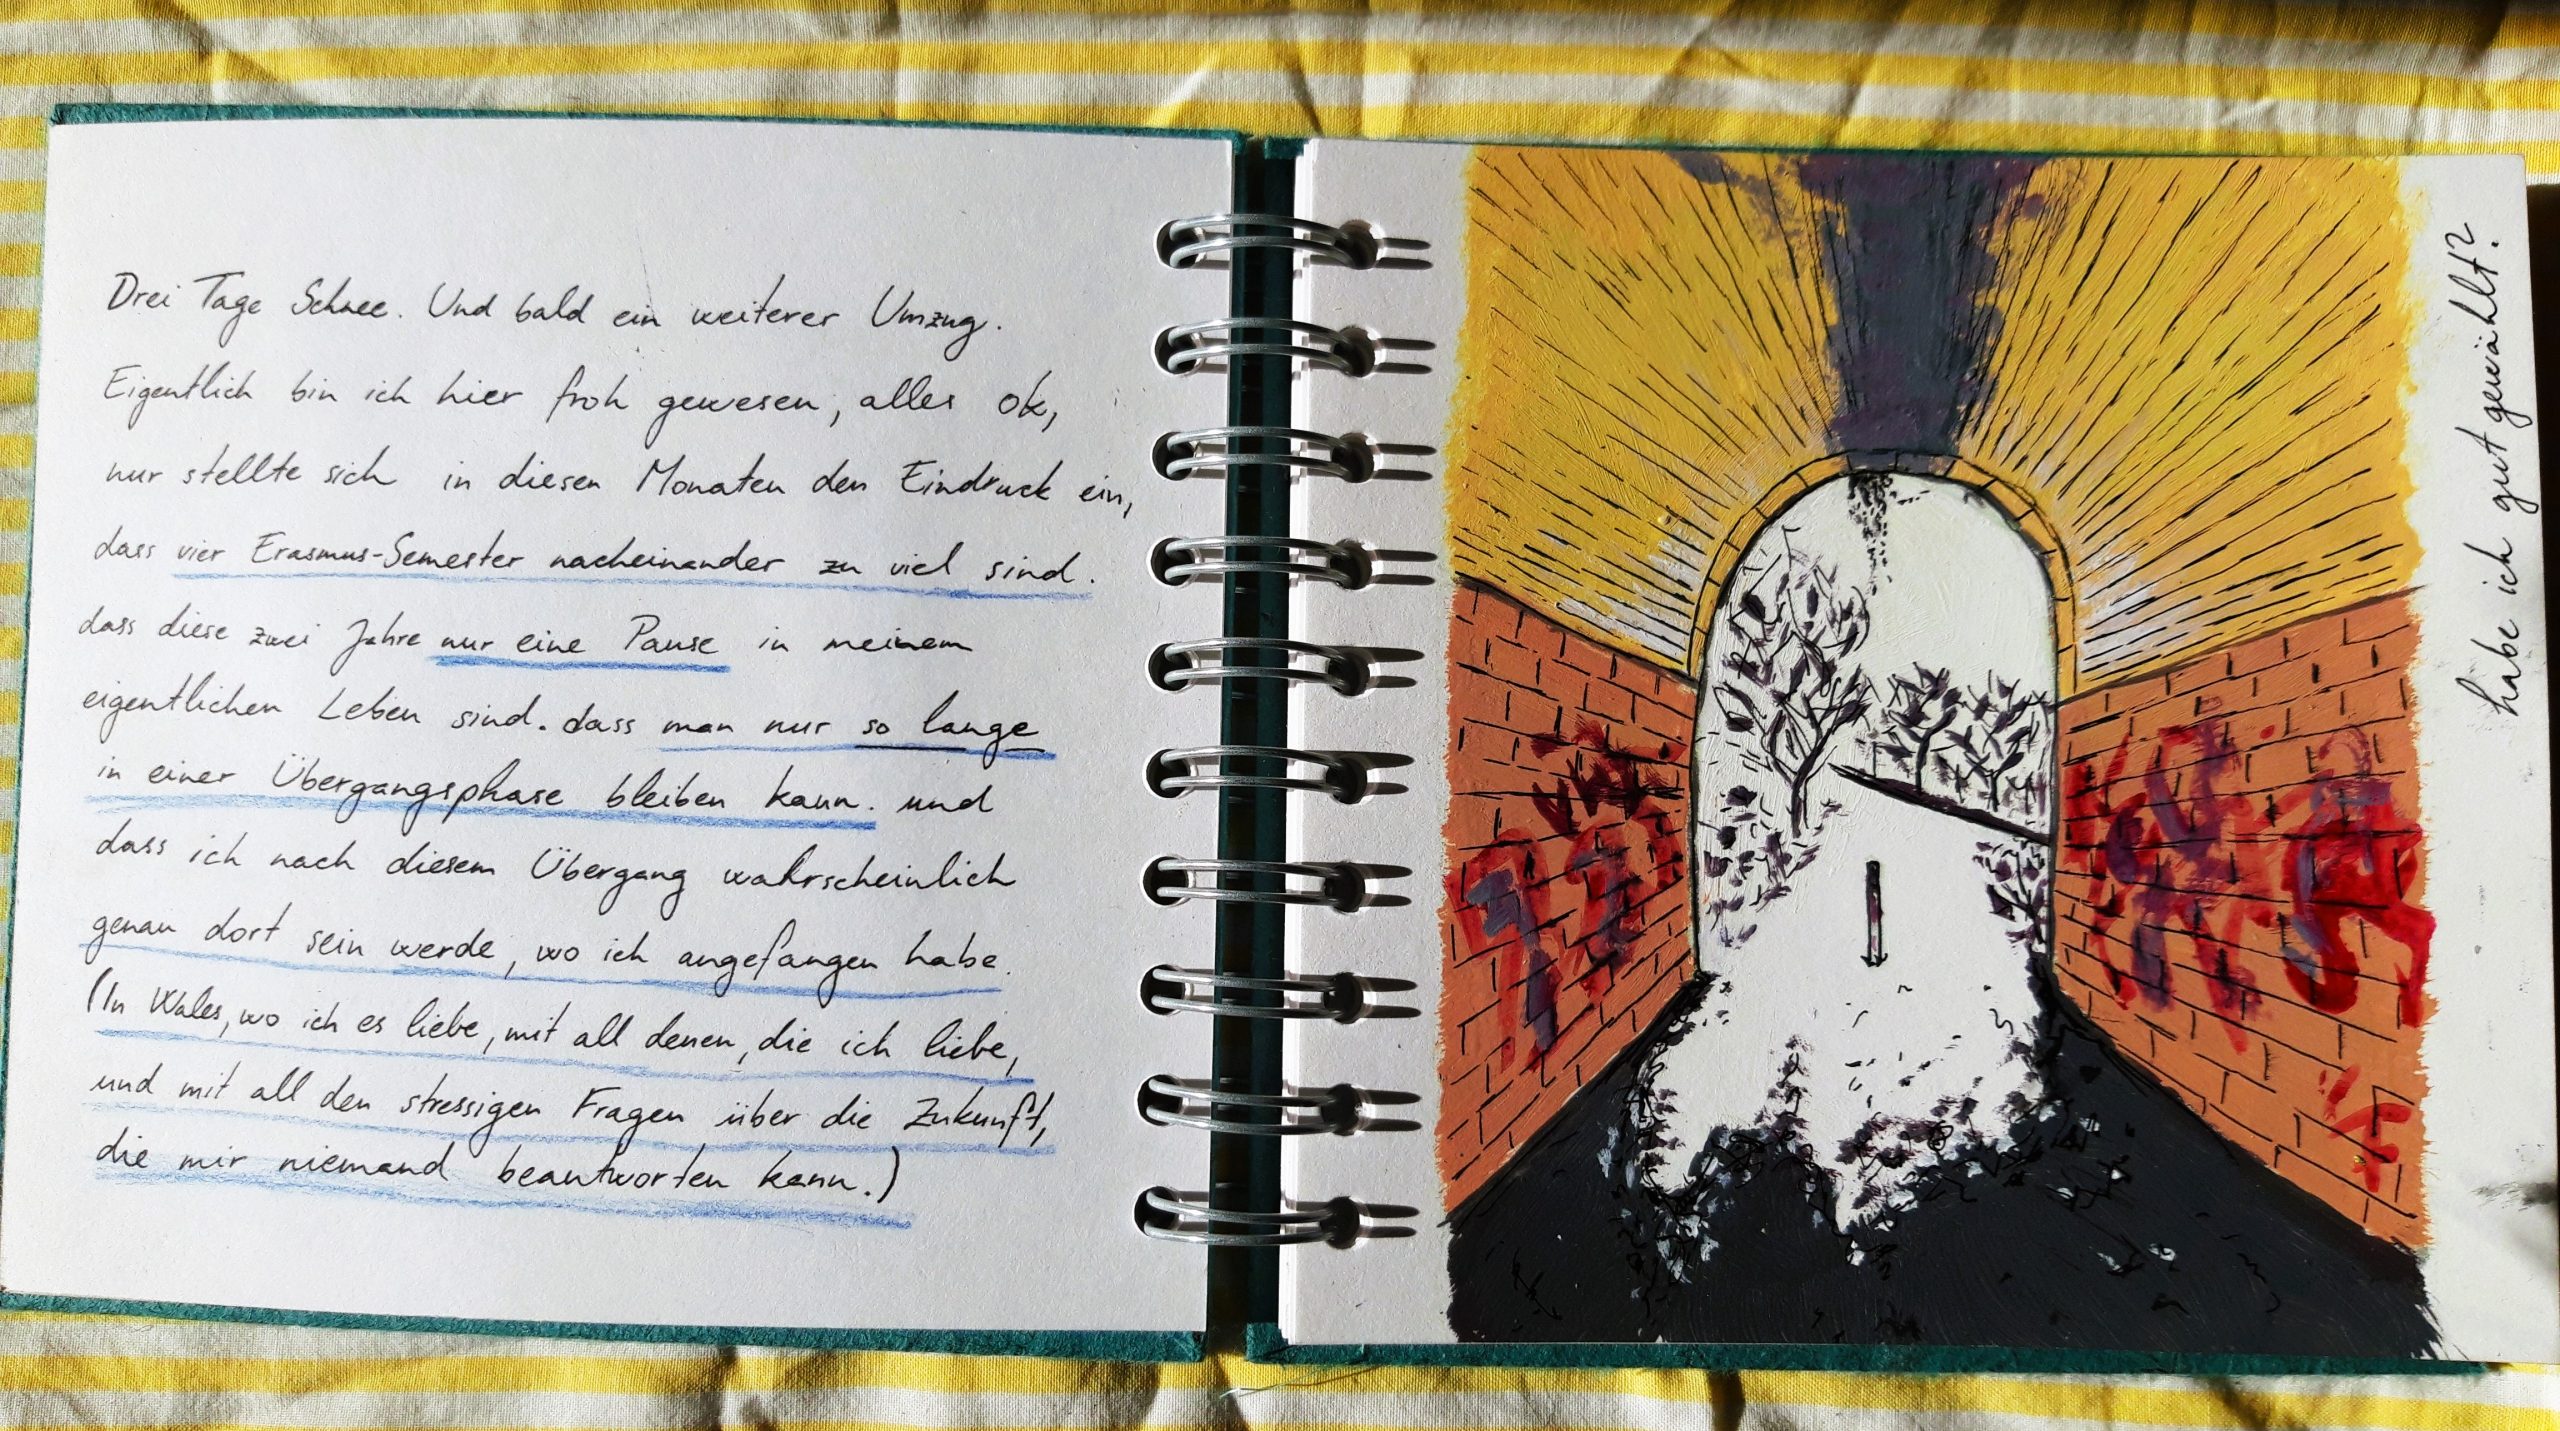 Drei Tage Schnee. Und bald ein weiterer Umzug.
Eigentlich bin ich hier froh gewesen, alles ok,
nur stellte sich in diesen Monaten den Eindruck ein,
dass vier Erasmus-Semester nacheinander zu viel sind.
dass diese zwei Jahre nur eine Pause in meinem
eigentlichen Leben sind. dass man nur so lange
in einer Übergangsphase bleiben kann. und
dass ich nach diesem Übergang wahrscheinlich
genau dort sein werde, wo ich angefangen habe.
(In Wales, wo ich es liebe, mit all denen, die ich liebe,
und mit all den stressigen Fragen über die Zukunft,
die mir niemand beantworten kann.)
habe ich gut gewählt?